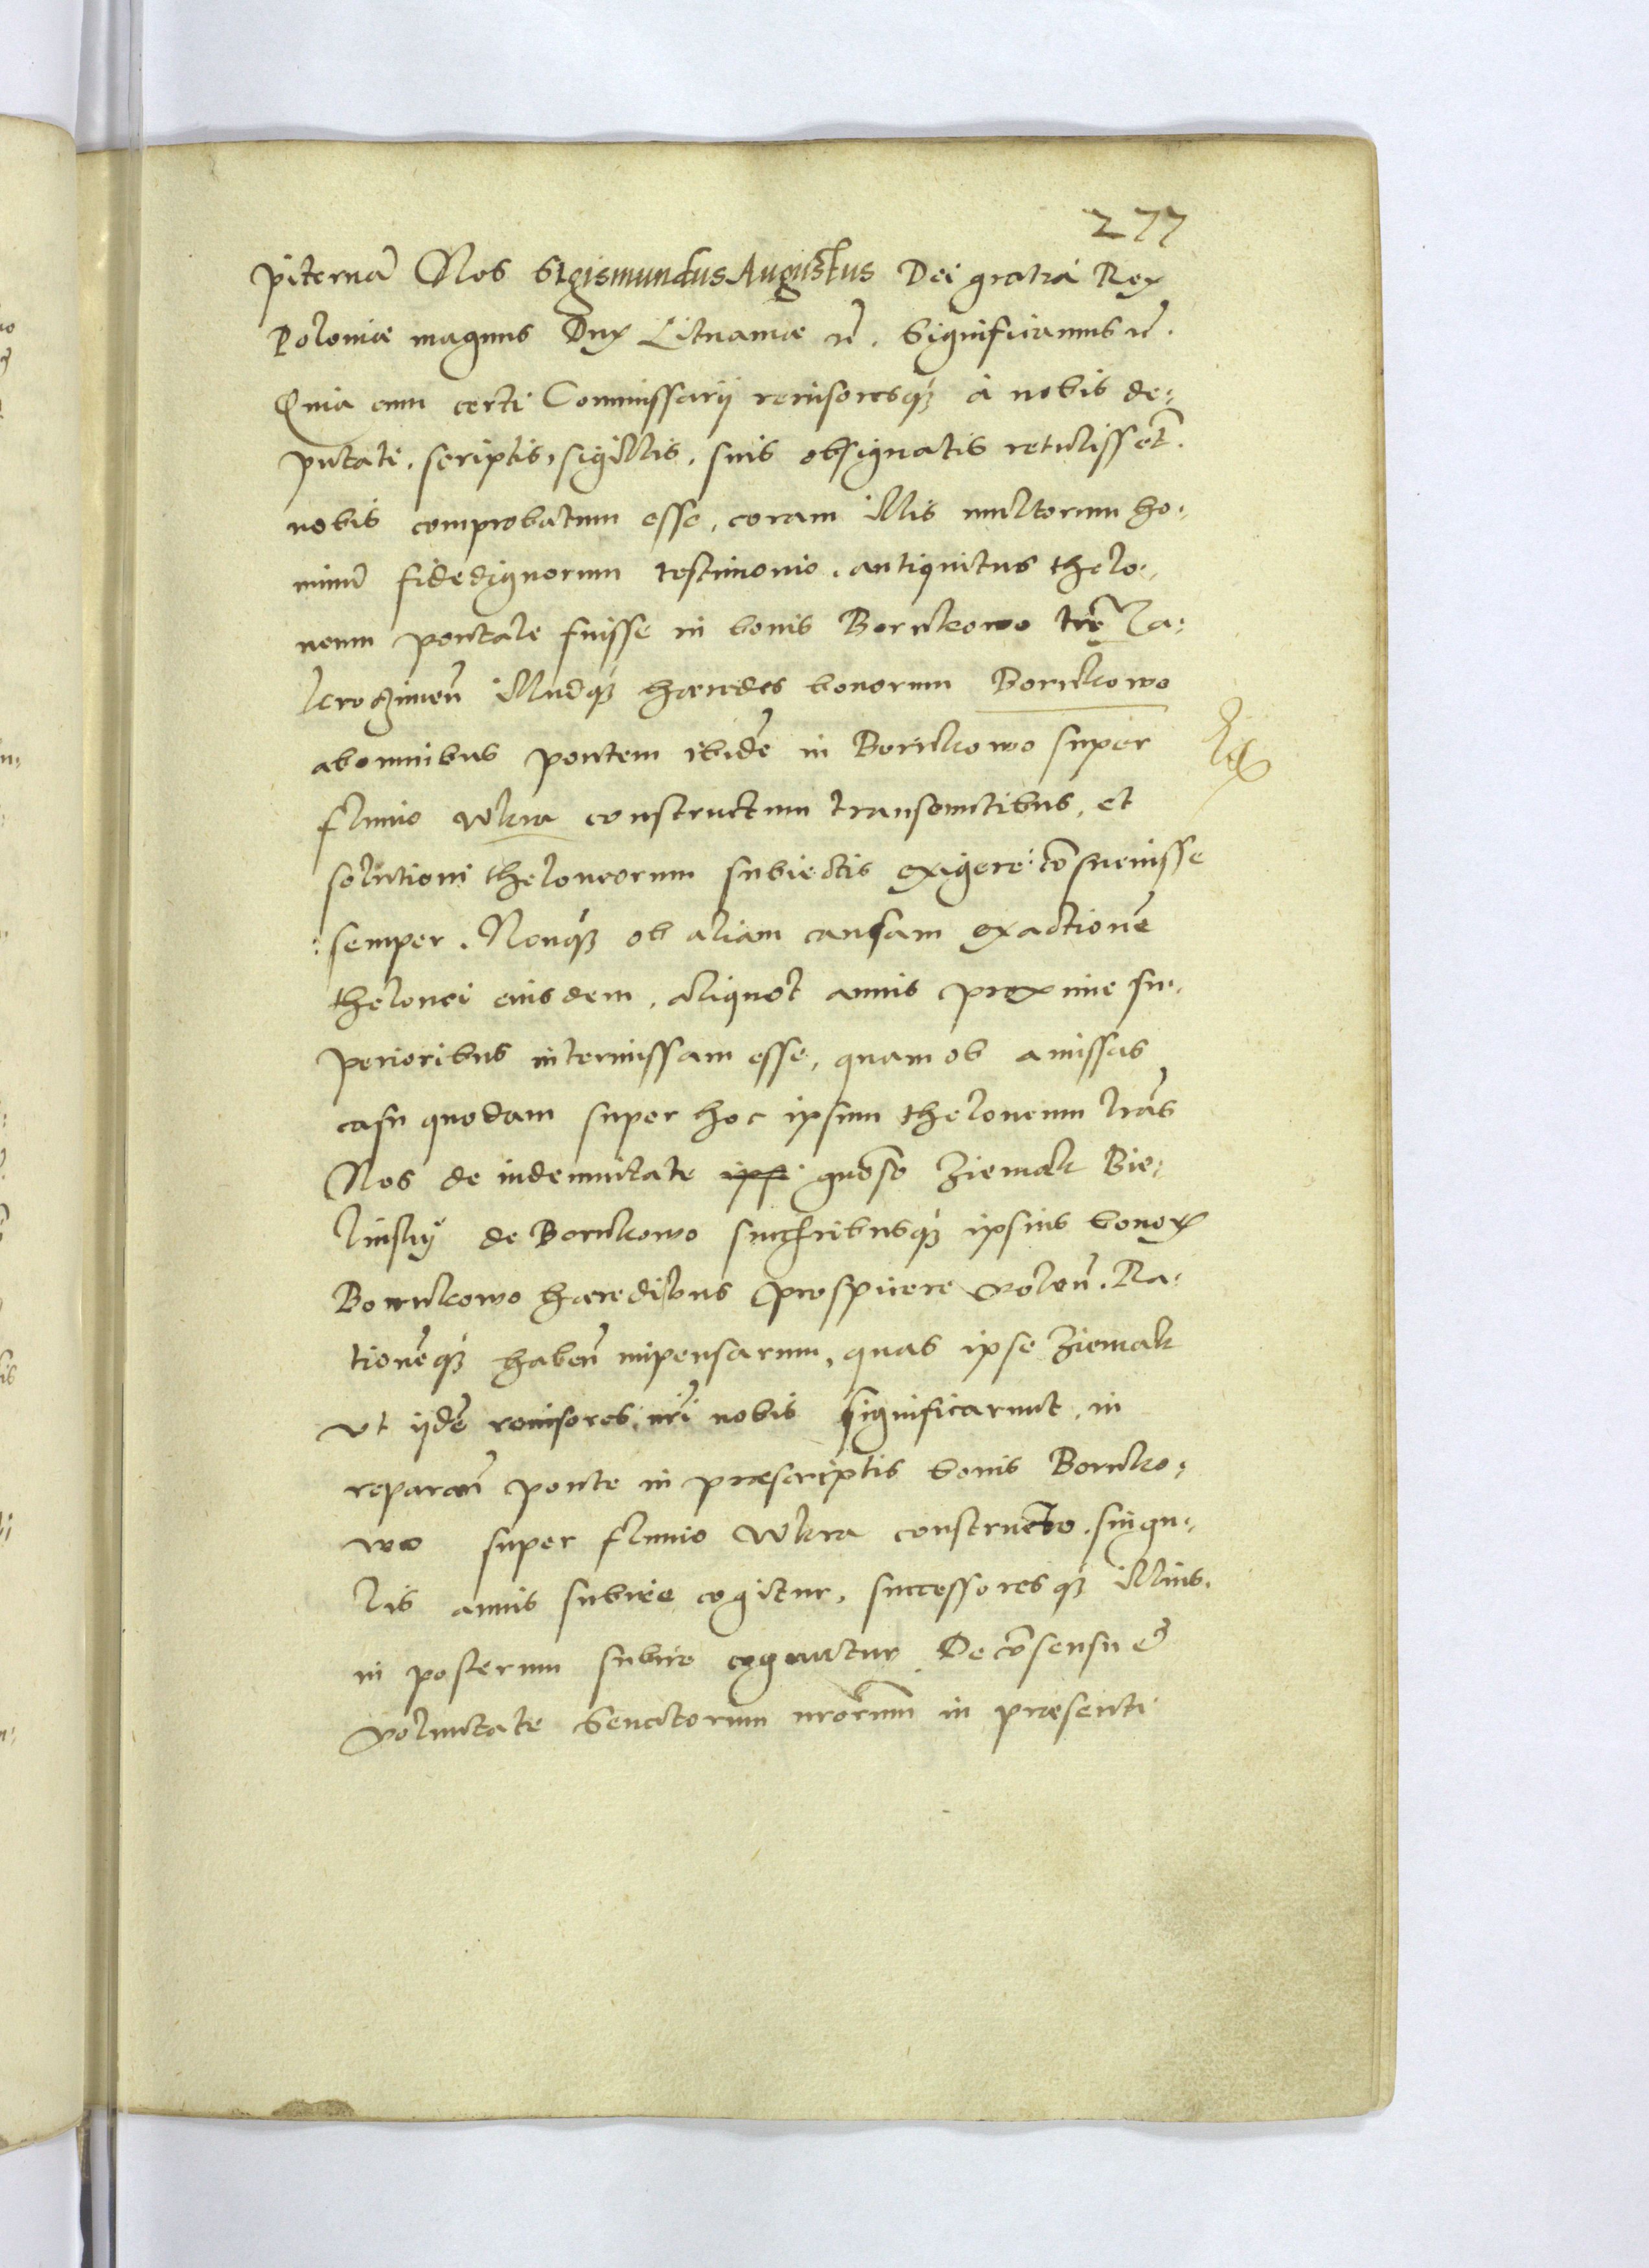 277
piternā Nos Sigismundus Augustus Dei gratia Rex
Poloniæ magnus Dux Lituaniæ ꝛc̄. Significamus ꝛc̄.
Quia cum certi Commissarij reuisoresqꝫ à nobis de-
putati, scriptis, sigillis, suis obsignatis retulissēt.
nobis comprobatum esse, coram illis multorum ho-
minū fidedignorum testimonio, antiquitus thelo-
neum pontale fuisse in bonis Bornkowo
illudqꝫ hæredes bonorum Bornkowo
ab omnibus pontem ibidē in Bornkowo super
fluuio Wkra constructum transeuntibus, et
solutioni theloneorum subiectis exigere cōsueuisse
semper. Nonqꝫ ob aliam causam exactionē
thelonei eiusdem, aliquot annis proxime su-
perioribus intermissam esse, quam ob amissas
casu quodam super hoc ipsum theloneum lrās
Nos de indemnitate ipsi gnōso Ziemak Bie-
linskÿ de Bornkowo succribusqꝫ ipsius bonoꝝ
Bornkowo hæredibus prospicere volen̄. Ra-
tionēqꝫ haben̄ impensarum, quas ipse Ziemak
vt ijdē reuisores nr̄i nobis significarunt, in
reparan̄ ponte in præscriptis bonis Bornko-
wo super fluuio Wkra constructo, singu-
lis annis subire cogitur, successoresqꝫ illius,
in posterum subire cogentur. De cōsensu &
voluntate Senatorum nrōrum in præsenti